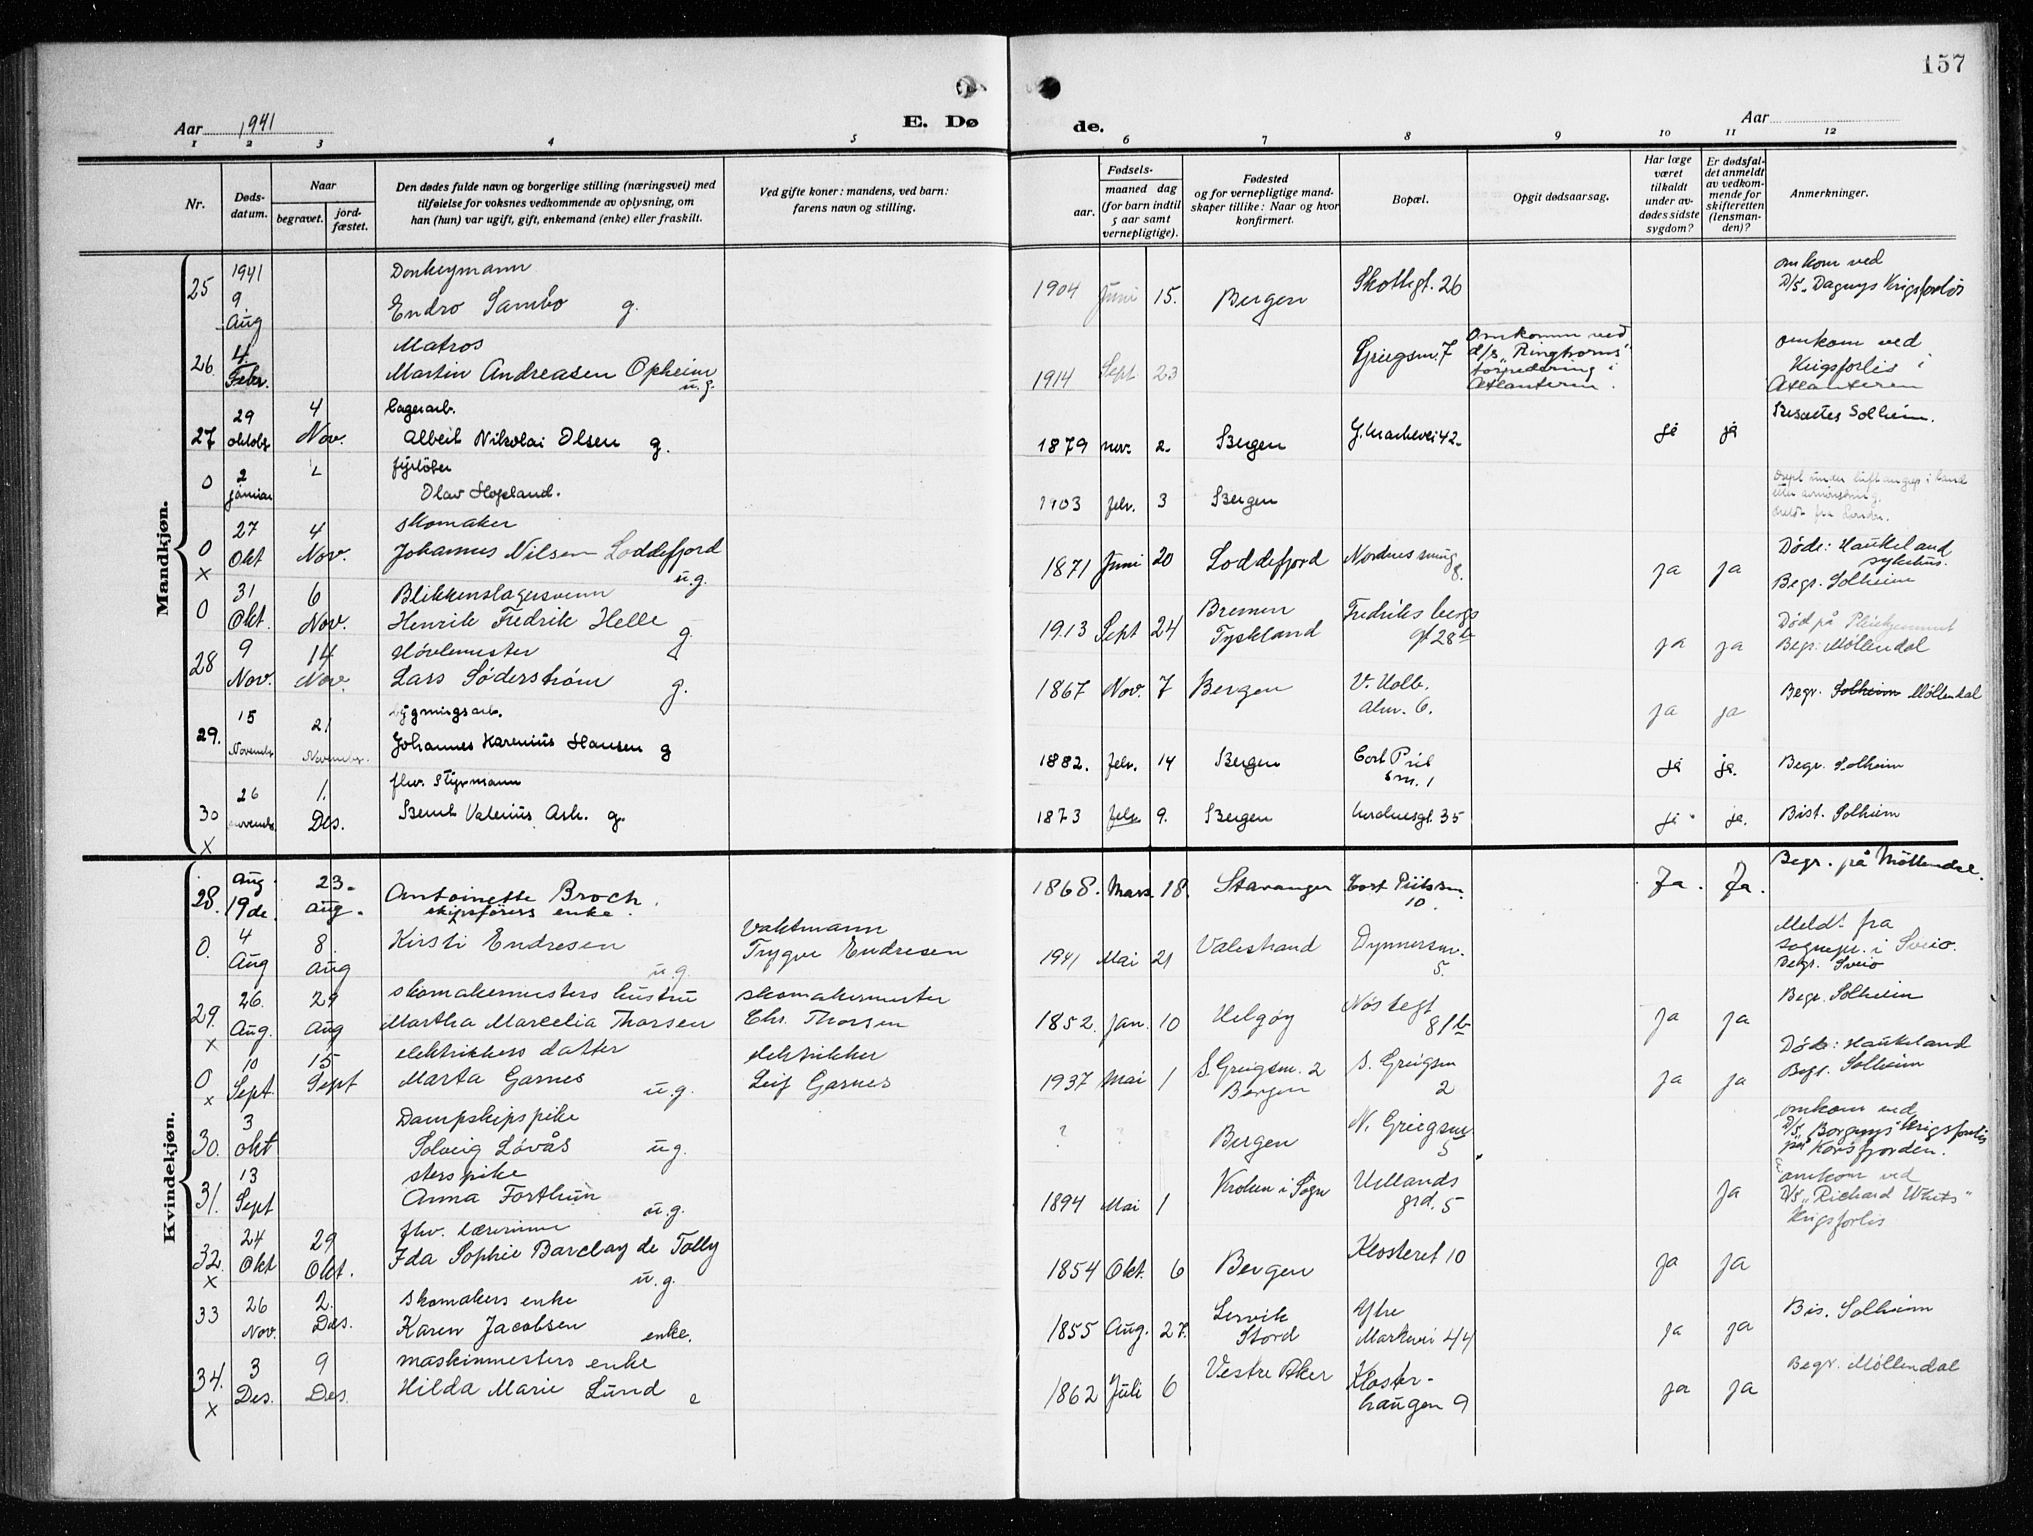 157
Aar 1941
E. Døde.
Aar
1 2 3 4 5 6 7 8 9 10 11 12
Nr.
Døds-
datum.
Naar
begravet.
jord-
fæstet.
Den dødes fulde navn og borgerlige stilling (næringsvei) med
tilføielse for voksnes vedkommende av oplysning, om
han (hun) var ugift, gift, enkemand (enke) eller fraskilt.
Ved gifte koner: mandens, ved barn:
farens navn og stilling.
Fødsels-
aar.
maaned dag
(for barn indtil
5 aar samt
vernepligtige).
Fødested
og for vernepligtige mand-
skaper tillike: Naar og hvor
konfirmert.
Bopæl.
Opgit dødsaarsag.
Har læge
været
tilkaldt
under av-
dødes sidste
sygdom?
Er dødsfal-
det anmeldt
av vedkom-
mende for
skifteretten
(lensman-
den)?
Anmerkninger.
Mandkjøn.
25 1941 9 Aug Donkeymann Endro Sambo g. 1904 Juni 15. Bergen Skottegt. 26 omkom ved D/S „Dagnys Krigsforlis
26 4. Febr. Matros Martin Andreasen Opheim u.g. 1914 Sept 23 Griegsm. 7 Omkommen ved d/s „Ringhorns" torpedering i Atlanteren. omkom ved Krigsforlis i Atlanteren
27 29 oktobr 4 Nov. Lagerarb. Albert Nikolai Olsen g. 1879 nov. 2. Bergen Y. Markevei 42 ja ja Bisettes Solheim.
0 2 januar fyrbøter Olav Hopland. 1903 febr. 3 Bergen under luftangrep i
0 x 27 Okt 4 Nov. skomaker Johannes Nilsen Loddefjord u.g. 1871 Juni 20 Loddefjord Nordnessmug 8. ja ja Døde: Haukeland sykehus. Begr. Solheim
0 31 Okt. 6 Nov. Blikkenslagersvenn Henrik Fredrik Helle g. 1913 Sept 24 Bremen Tyskland Fredriksbergs gt 28b ja ja Død på Pleiehjemmet Begr. Møllendal
28 9 Nov. 14 Nov. Høvlemester Lars Søderstrøm g. 1867 Nov. 7 Bergen V. Holb. alm. 6. ja ja Begr. Solheim Møllendal
29. 15 Novembr 21 Novembr. bygningsarb. Johannes Karenius Hansen g 1882. febr. 14 Bergen Cort Piil sm. 1 ja ja. Begr. Solheim
30 x 26 novembr. 1. Des. fhv. Styrmann Bernt Valerius Ask. g. 1873 febr 9. Bergen Nordnesgt. 35 ja ja. Bist. Solheim
Kvindekjøn.
28. Aug. 19de. 23. aug. Antoinette Broch. skipsførers enke. 1868. Mars. 18. Stavanger Cort Piilssm 10. Ja. Ja. Begr. på Møllendal.
0. 4 Aug 8. aug Kirsti Endresen u.g. Vaktmann Trygve Endresen 1941 Mai 21 Valestrand Dynnersm. 5. Meldt fra sognepr. i Sveio. Begr. Sveio
29. x 26. Aug. 29 Aug skomakermesters hustru Martha Marcelia Thorsen skomakermester Chr. Thorsen 1852. Jan. 10 Helgøy Nøstegt 81b ja ja Begr. Solheim
0 x 10 Sept. 15 Sept elektrikkers datter Marta Garnes u.g. elektrikker Leif Garnes 1937 Mai 1 S. Greigsm. 2 Bergen S. Greigsm 2 ja ja Døde: Haukeland Begr. Solheim
30. 3 okt Dampskipspike Solveig Løvås u.g. ? Bergen N. Griegsm 5 omkom ved D/S „Borgnys" krigsforlis på Korsfjorden.
31. 13 Sept Anna Forthun u.g. 1894 Mai 1 Kroken i Sogn Uellands grd. 5 ja omkom ved D/S „Richard Withs" krigsforlis
32. x 24 Okt 29 Okt. fhv. lærerinne Ida Sophie Barclay de Tolly u.g. 1854 Okt. 6 Bergen Klosteret 10 ja ja
33 26 Nov. 2. Des. skomakers enke Karen Jacobsen enke. 1855 Aug. 27. Lervik Stord Ytre Markevei 44 ja ja Bis. Solheim
34. x 3 Des. 9 Des. maskinmesters enke Hilda Marie Lund e 1862 Juli 6 Vestre Aker Kloster-haugen 9 ja ja Begr. Møllendal